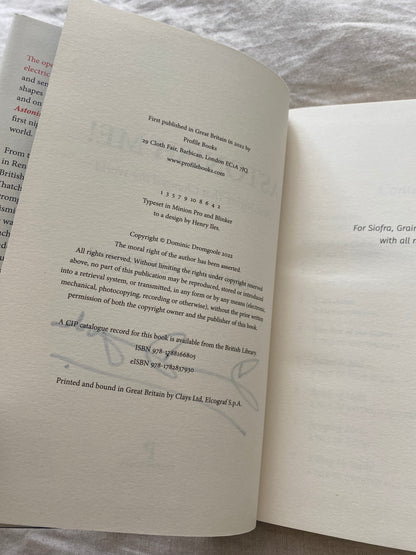 The ope
electric
and sen
shapes
and on
Astonis
first nig
world.
From t
in Ren
British
Thatch
Promp
ismi
First published in Great Britain in 2022 by
Profile Books
29 Cloth Fair, Barbican, London EC1A 7JQ
www.profilebooks.com
1 3 5 7 9 10 8 6 4 2
Typeset in Minion Pro and Blinker
to a design by Henry Iles.
Copyright © Dominic Dromgoole 2022
The moral right of the author has been asserted.
All rights reserved. Without limiting the rights under copyright reserved
above, no part of this publication may be reproduced, stored or introduced
into a retrieval system, or transmitted, in any form or by any means (electronic,
mechanical, photocopying, recording or otherwise), without the prior written
permission of both the copyright owner and the publisher of this book.
A CIP catalogue record for this book is available from the British Library.
ISBN 978-1788166805
eISBN 978-1782837930
Printed and bound in Great Britain by Clays Ltd, Elcograf S.p.A.
For Siofra, Grain
with all